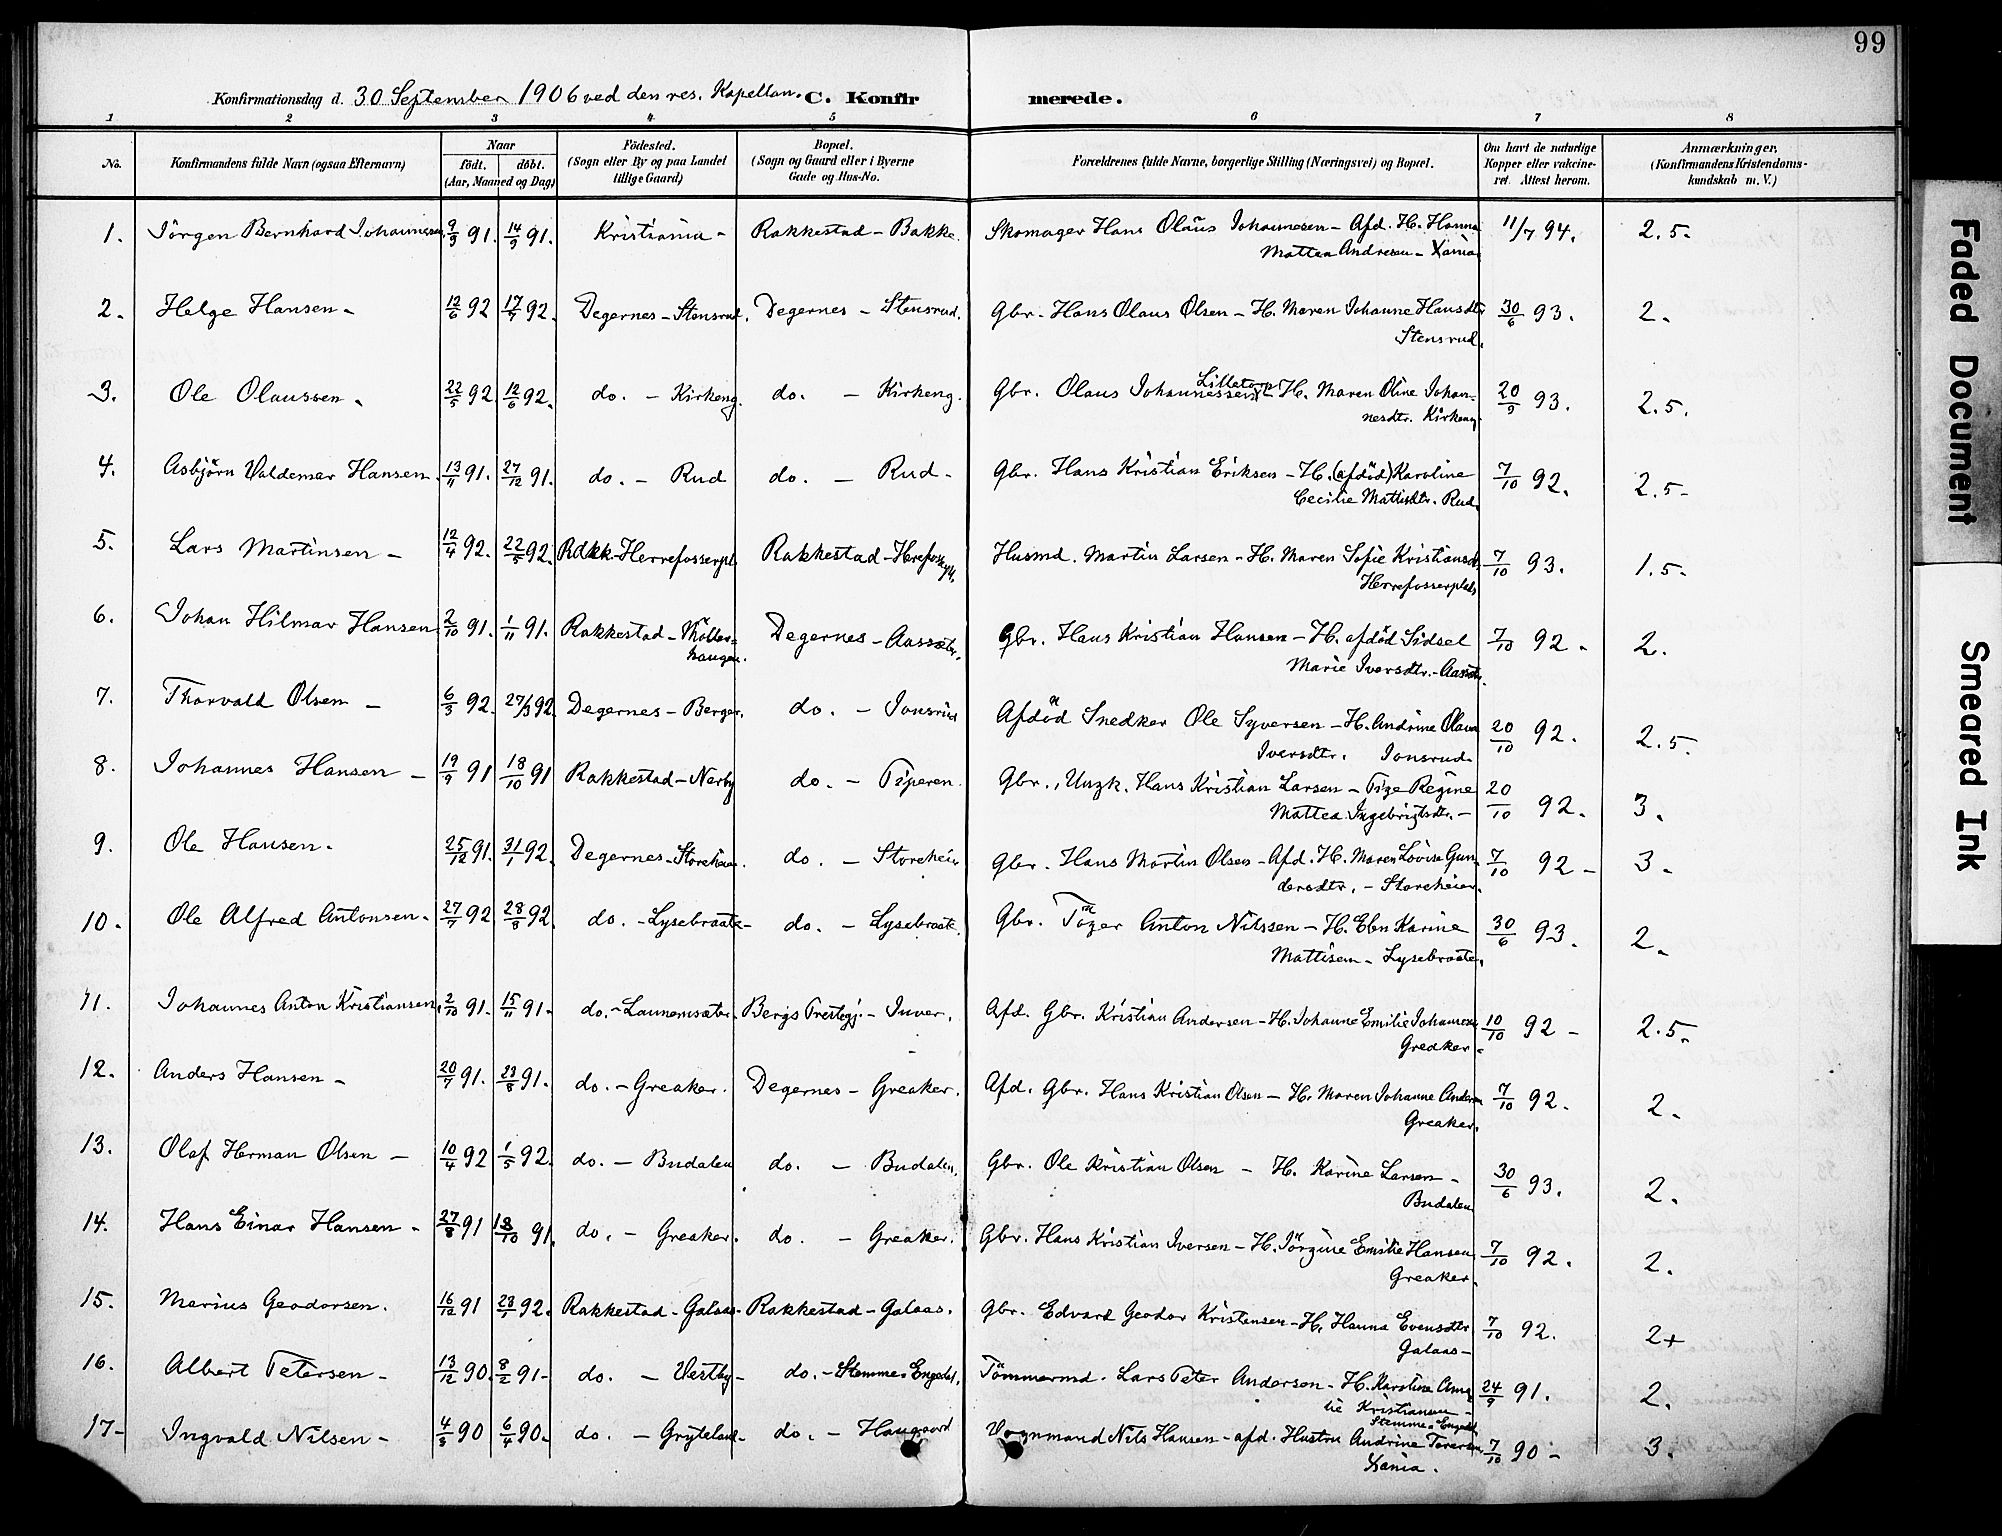 99
Konfirmationsdag d. 30 September 1906 ved den res. Kapellan. C. Konfirmerede.
1 2 3 4 5 6 7 8
No. Konfirmandens fulde Navn (ogsaa Efternavn) Naar født. døbt. (Aar, Maaned og Dag) Fødested. (Sogn eller By og paa Landet tillige Gaard) Bopæl. (Sogn og Gaard eller i Byerne Gade og Hus-No. Forældrenes fulde Navne, borgerlige Stilling (Næringsvei) og Bopæl. Om havt de naturlige Kopper eller vakcineret. Attest herom. Anmærkninger, (Konfirmandens Kristendomskundskab m. V.)
1. Jörgen Bernhard Johannesen 9/9 91. 14/9 91. Kristiania - Rakkestad - Bakke. Skomager Hans Olaus Johannesen - Afd. H. Hanna 11/7 94. 2.5.
Mattea Andresen - Xania
2. Helge Hansen - 12/6 92 17/7 92. Degernes - Stensrud. Degernes - Stensrud. Gbr. Hans Olaus Olsen - H. Maren Johanne Hansdtr 30/6 93. 2.
Stensrud.
3. Ole Olaussen. 22/5 92 12/6 92. do. - Kirkeng. do. - Kirkeng. Gbr. Olaus Johannessen - H. Maren Oline Johan- 20/9 93. 2.5.
nesdtr. Kirkeng
4. Asbjörn Valdemar Hansen. 13/11 91. 27/12 91. do. - Rud do. - Rud - Gbr. Hans Kristian Eriksen - H. (afdöd) Karoline 7/10 92. 2.5-
Cecilie Mattisdtr. Rud.
5. Lars Martinsen - 12/4 92. 22/5 92. Rakk-Herrefosserpl. Rakkestad - Husmd. Martin Larsen - H. Maren Sofie Kristiansdtr 7/10 93. 1.5-
Herrefosserplads
6. Johan Hilmar Hansen 2/10 91. 1/11 91. Rakkestad - Degernes - Aassæter. Gbr. Hans Kristian Hansen - H. afdöd Sidsel 7/10 92 - 2.
haugen. Marie Iversdtr. -
7. Thorvald Olsen - 6/3 92. 27/3 92. Degernes - Berger. do. - Jonsrud Afdöd Snedker Ole Syversen - H. Andrine Olava 20/10 92. 2.5.
Iversdtr. Jonsrud.
8. Johannes Hansen - 19/9 91 18/10 91 Rakkestad - Nærby do. - Tiperen. Gbr., Ungk. Hans Kristian Larsen - Pige Regine 20/10 92. 3.
Mattea Ingebrigtsdtr. -
9. Ole Hansen. 25/12 91. 31/1 92. Degernes - do. - Storeheier Gbr. Hans Martin Olsen - Afd. H. Maren Lovise Gun- 7/10 92 - 3.
dersdtr. - Storeheier.
10. Ole Alfred Antonsen. 27/7 92 28/8 92. do. - Lysebraate - do. - Lysebraate. Gbr. Anton Nilssen - H. Karine 30/6 93. 2.
Mattisen - Lysebraate.
11. Johannes Anton Kristiansen. 2/10 91. 15/11 91. do. - Launemsæter. Bergs Prestegj. - Gbr. Kristian Andersen - H. Johanne Emilie Johannesen 10/10 92 - 2.5.
Afd. Greaker.
12. Anders Hansen - 20/7 91. 23/8 91. do. - Greaker. Degernes - Greaker. Afd. Gbr. Hans Kristian Olsen - H. Maren Johanne Andersen 7/10 92. 2.
Greaker.
13. Olaf Herman Olsen - 10/4 92 1/5 92. do. - Budalen do. - Budalen. Gbr. Ole Kristian Olsen - H. Karine Larsen - 30/6 93. 2.
Budalen
14. Hans Einar Hansen - 27/8 91 18/10 91. do. - Greaker. do. - Greaker. Gbr. Hans Kristian Iversen - H. Jörgine Emilie Hansen 7/10 92. 2.
Greaker.
15. Marius Geodorsen. 16/12 91 23/1 92. Rakkestad - Galaas - Rakkestad - Galaas. Gbr. Edvard Geodor Kristensen - H. Hanna Evensdtr 7/10 92. 2+
Galaas -
16. Albert Petersen - 13/12 90. 8/2 91 - do. - Vestby - do. - Stemme - Engedal. Tömmermd. Lars Peter Andersen - H. Karoline Ama- 24/9 91. 2.
lie Kristiansen -
Stemme - Engedal
17 - Ingvald Nilsen - 4/3 90 6/4 90 - do. - Gryteland - do. - Haugaard Vognmand Nils Hansen - afd. Hustru Andrine Toresen 7/10 90 - 3.
Xania.
Faded Document
Smeared Ink